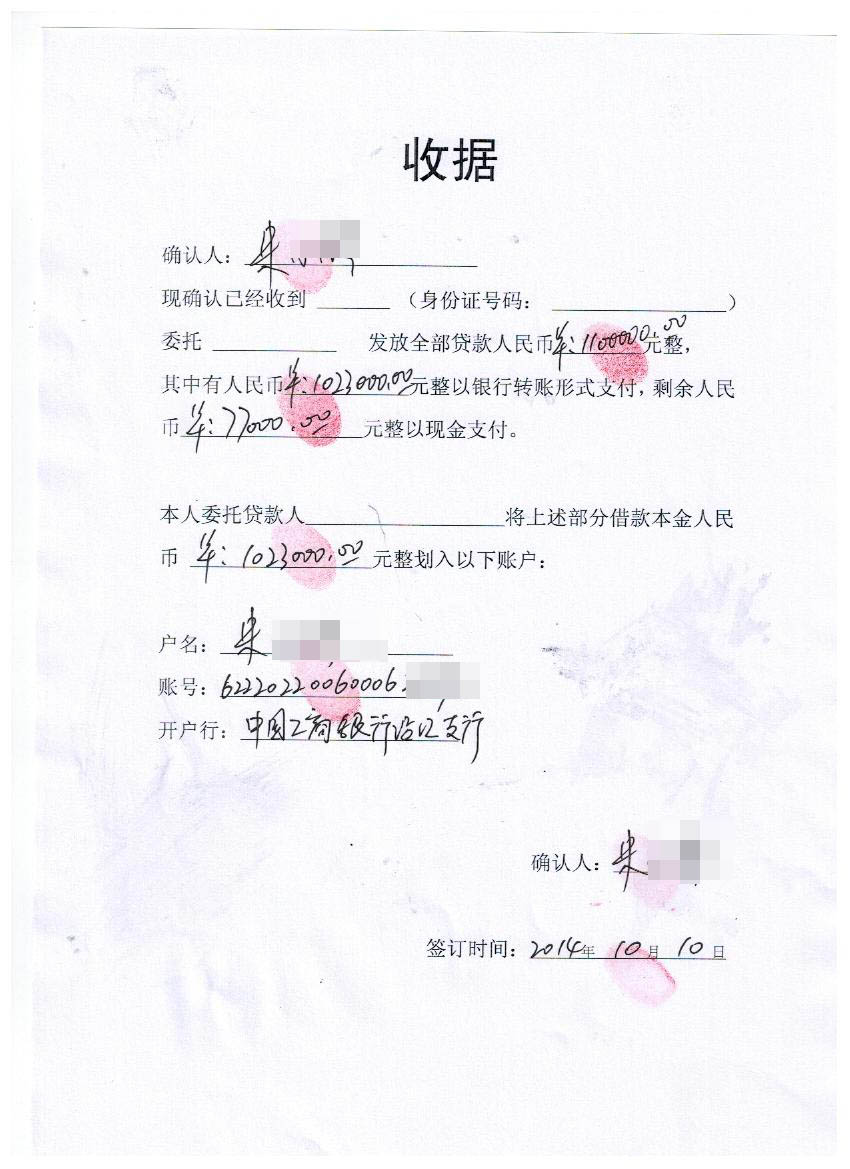 收据
确认人：朱
现确认已经收到 ______ （身份证号码： ______________）
委托 __________ 发放全部贷款人民币￥：1100000.00元整，
其中有人民币￥：1023000.00元整以银行转账形式支付，剩余人民
币￥：77000.00元整以现金支付。
本人委托贷款人________________将上述部分借款本金人民
币￥：1023000.00元整划入以下账户：
户名：朱
账号：62220220060006
开户行：中国工商银行沿江支行
确认人：朱
签订时间：2014年10月10日